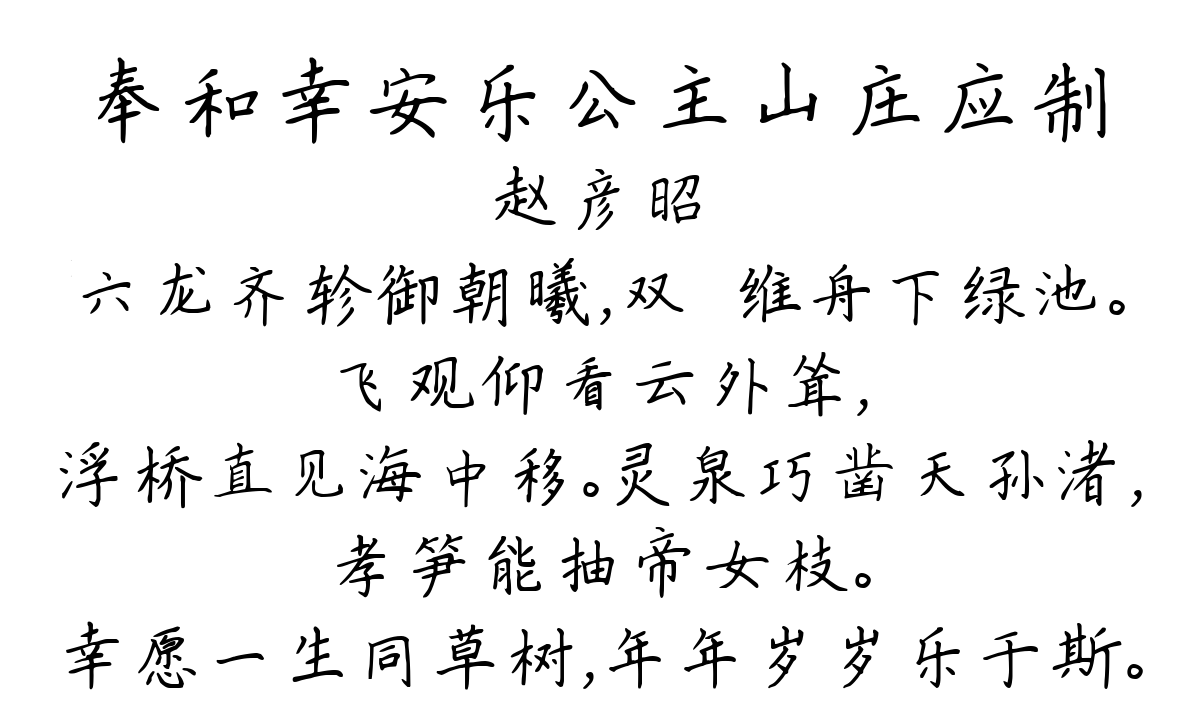 奉和幸安乐公主山庄应制
赵彦昭
六龙齐轸御朝曦,双 维舟下绿池。
飞观仰看云外耸,
浮桥直见海中移。灵泉巧凿天孙渚,
孝笋能抽帝女枝。
幸愿一生同草树,年年岁岁乐于斯。